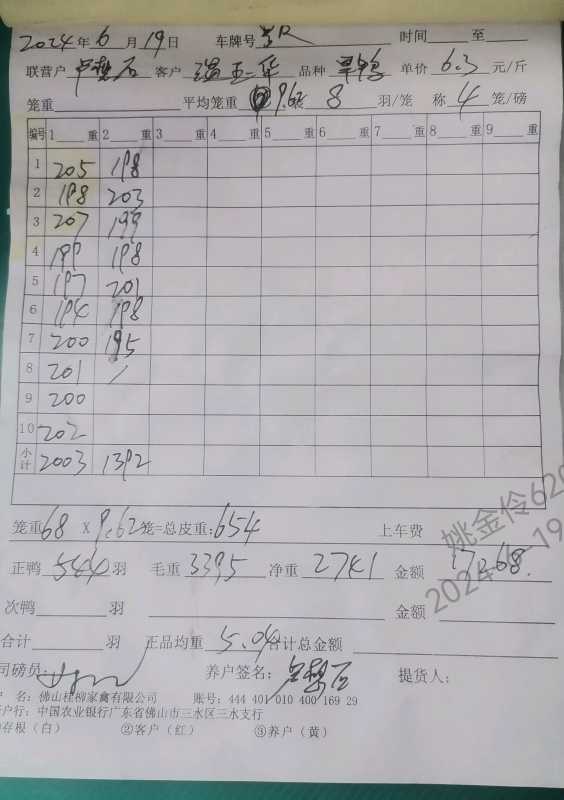 2024年6月19日 车牌号 时间 至
联营户 卢 石 客户 温五二华 品种 单价 6.3 元/斤
笼重 平均笼重 9.62 装 8 羽/笼 称 4 笼/磅
编号 1 重 2 重 3 重 4 重 5 重 6 重 7 重 8 重 9 重
1 205 198
2 198 203
3 207 199
4 199 198
5 197 201
6 194 198
7 200 195
8 201 /
9 200
10 202
小计 2003 1392
笼重 68 X 9.62 笼=总皮重: 654 上车费
正鸭 544 羽 毛重 3395 净重 2741 金额 17268.
次鸭 羽 金额
合计 羽 正品均重 5.04 合计总金额
司磅员: 养户签名: 石 提货人:
名: 佛山桂柳家禽有限公司 账号: 444 401 010 400 169 29
户行: 中国农业银行广东省佛山市三水区三水支行
存根（白） ②客户（红） ③养户（黄）
姚金伶620
2024 19